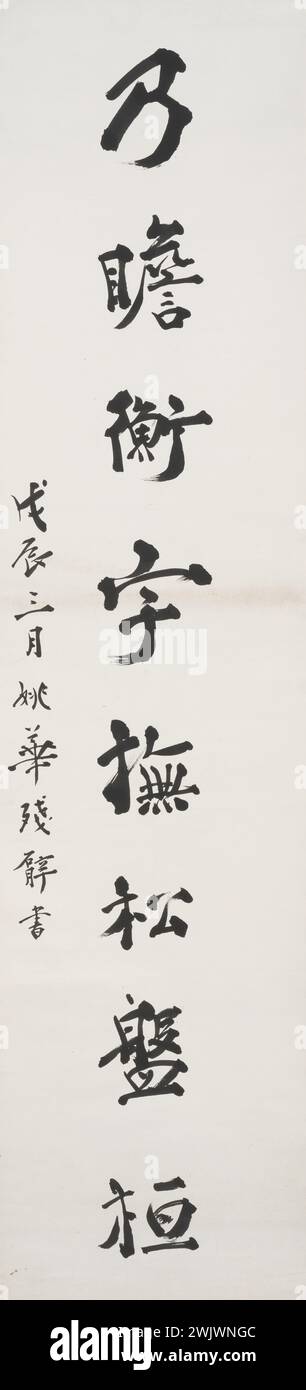 乃瞻衡宇撫松盤桓
戊辰三月姚華殘臂書
alamy
alamy
alamy
Image ID: 2WJWNGC
www.alamy.com